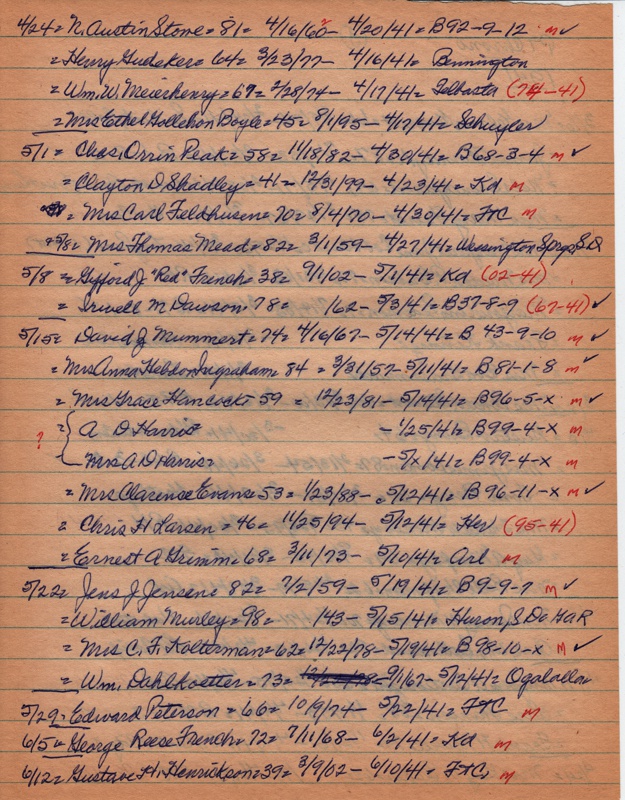 4/24 = N. Austin Stone = 81 = 4/16/60 - 4/20/41 = B92-9-12 m ✓
= Henry Gudeker = 64 = 3/23/77 - 4/16/41 = Bennington
= Wm. W. Meierhenry = 67 = 2/28/74 - 4/17/41 = (74-41)
= Mrs Ethel Gollehon Boyle = 45 = 8/1/95 - 4/17/41 = Schuyler
5/1 = Chas. Orrin Peak = 58 = 11/18/82 - 4/30/41 = B68-3-4 m ✓
= Clayton D Shadley = 41 = 12/31/99 - 4/23/41 = Kd m
= Mrs Carl Feldhusen = 70 = 8/4/70 - 4/30/41 = FTC m
= 5/8 = Mrs Thomas Mead = 82 = 3/1/59 - 4/27/41 = Wessington Sprgs, S.D
5/8 = Gifford J "Red" French = 38 = 9/1/02 - 5/1/41 = Kd (02-41)
= M Dawson, 78 = 162 - 5/3/41 = B37-8-9 (67-41) ✓
5/15 = David J Mummert = 74 = 4/16/67 - 5/14/41 = B 43-9-10 m ✓
= Mrs Anna Hebdon Ingraham 84 = 3/31/57 - 5/11/41 = B81-1-8 m ✓
= Mrs Grace Hancock = 59 = 12/23/81 - 5/14/41 = B96-5-x m ✓
= A D Harris = - 1/25/41 = B99-4-x m
? { Mrs A D Harris = - 5/x/41 = B99-4-x m
= Mrs Clarence Evans = 53 = 1/23/88 - 5/12/41 = B96-11-x m ✓
= Chris H Larsen = 46 = 11/25/94 - 5/12/41 = Her (95-41)
= Ernest A Grimm = 68 = 3/11/73 - 5/10/41 = Arl m
5/22 = Jens J Jensen = 82 = 7/2/59 - 5/19/41 = B9-9-7 m ✓
= William Murley = 98 = 143 - 5/15/41 = Huron, S Da GAR
= Mrs C. F. Kolterman = 62 = 12/22/78 - 5/19/41 = B98-10-x m ✓
= Wm. Dahlkoetter = 73 = 9/1/67 - 5/12/41 = Ogalallon
5/29 = Edward Peterson = 66 = 10/9/74 - 5/22/41 = FTC m
6/5 = George Reese French = 72 = 7/11/68 - 6/2/41 = Kd m
6/12 = Gustave H. Henrickson = 39 = 3/9/02 - 6/10/41 = FTC, m